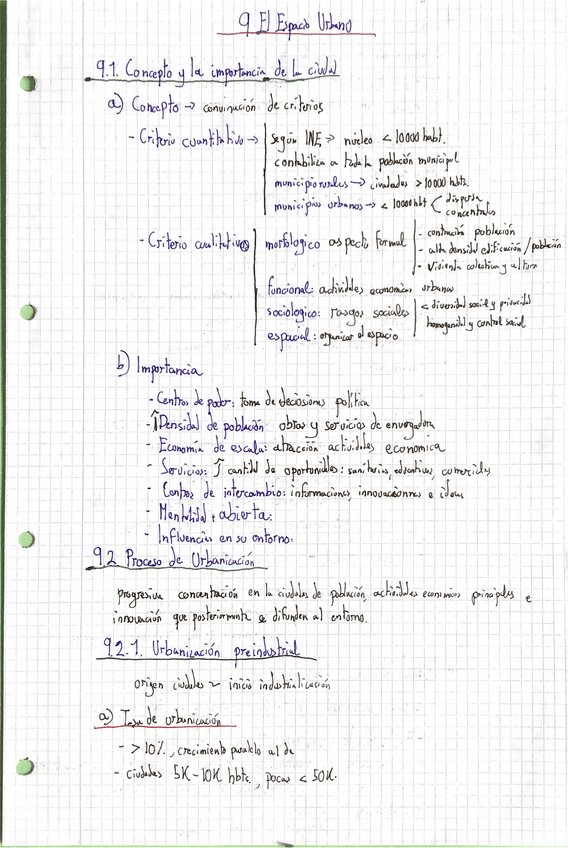 9 El Espacio Urbano
9.1. Concepto y la importancia de la ciudad
a) Concepto → convinación de criterios
- Criterio cuantitativo → según INE → núcleo < 10000 habt.
contabiliza a toda la población municipal
municipio rurales → ciudades > 10000 hbts.
municipios urbanos → < 10000 hbt < dispersa
concentrados
- Criterio cualitativo morfologico aspecto formal - población
- alta densidad edificación / población
- vivienda colectiva y altura
funcional: actividades economicas urbanas
sociologico: rasgos sociales < diversidad social y privacidad
espacial: organizar el espacio homogeneidad y control social
b) Importancia
- Centros de poder: toma de deciosiones política
- ↑Densidad de población obras y servicios de envergadura
- Economía de escala: atracción actividades economica
- Servicios: ↑ cantidad de oportunidades: sanitarios, educativos, comerciales
- Centros de intercambio: informaciones, innovaciones e ideas
- Mentalidad + abierta.
- Influencias en su entorno.
9.2 Proceso de Urbanización
progresiva concentración en la ciudades de población, actividades economicas principales e
innovación que posteriormente se difunden al entorno.
9.2.1. Urbanización preindustrial
origen ciudades ~ inicio industrialización
a) Tasa de urbanización
- > 10%, crecimiento paralelo al de
- ciudades 5K-10K hbts, pocas < 50K.